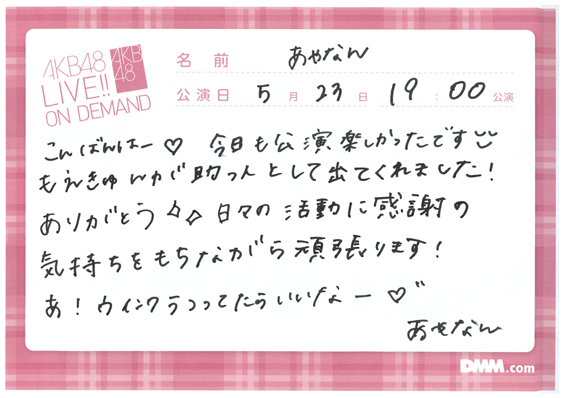 AKB48
LIVE!!
ON DEMAND
AKB
48
名前 あやなん
公演日 5月23日 19:00公演
こんばんはー♡ 今日も公演楽しかったです
もえきゅんが助っ人として出てくれました!
ありがとう 日々の活動に感謝の
気持ちをもちながら頑張ります!
あ!ウインクうつってたらいいなー♡
あやなん
DMM.com